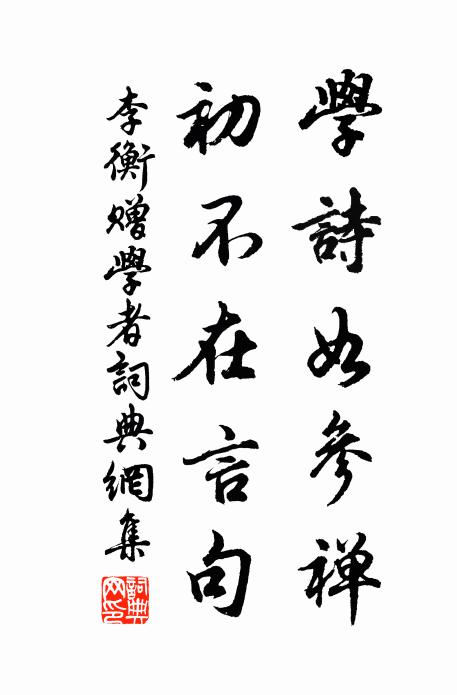 學詩如參禪
初不在言句
李衡贈學者詞典網集
詞典網印